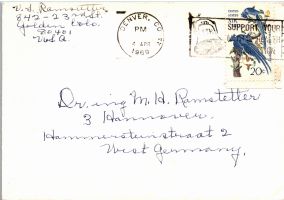 V. H. Ramstetter
842-23rd St.
Golden Colo.
80401
USA
DENVER, CO
PM
4 APR
1969
SUPPORT YOUR
20c
Dr. ing M. H. Ramstetter
3 Hannover.
Hammersteinstraat 2
West Germany.